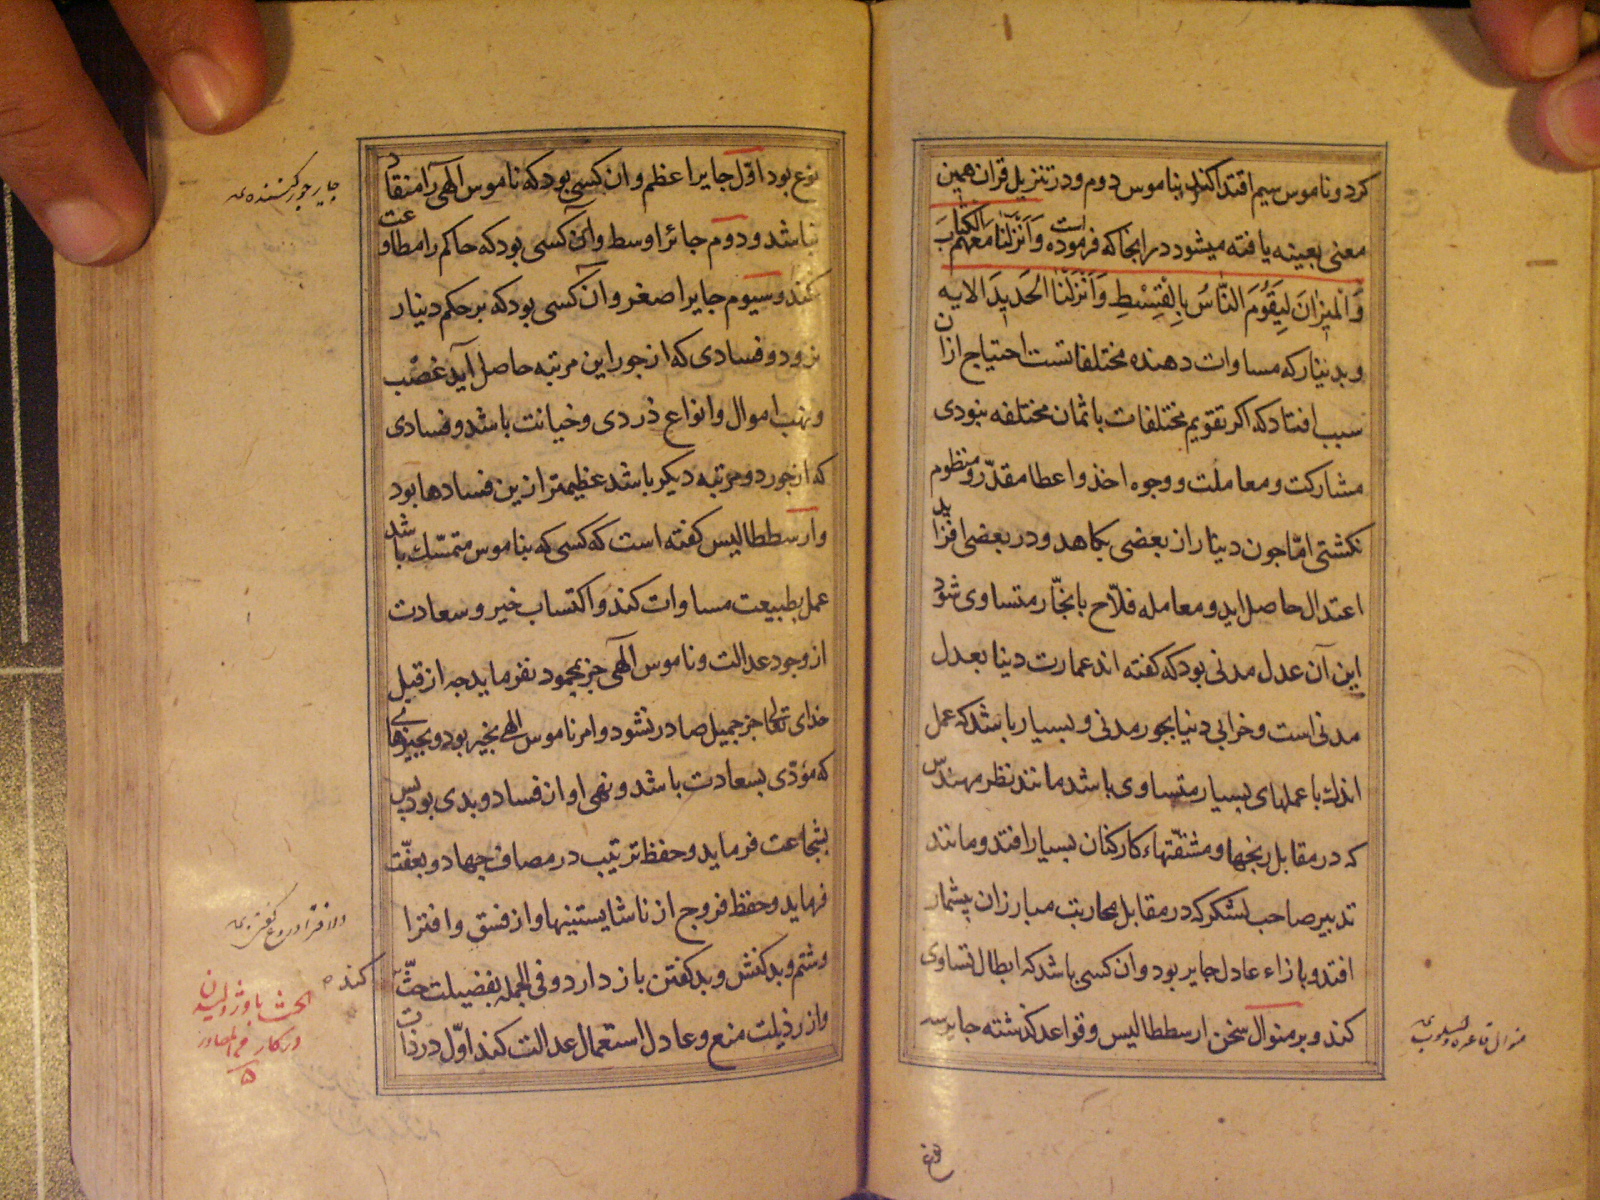 کرد و ناموس سیم اقتدا کند بناموس دوم و در تنزیل قران همین
معنی بعینه یافته میشود در انجا که فرموده است وَاَنْزَلْنَا مَعَهُم الکِتَابَ
وَالْمِیزَانَ لِیَقُومَ النَّاسُ بِالْقِسْطِ وَاَنْزَلْنَا الحَدِیدَ الایه
و بدینار که مساوات دهنده مختلفاتست احتیاج ازان
سبب افتاد که اکر تقویم مختلفات باثمان مختلفه نبودی
مشارکت و معاملت و وجوه اخذ و اعطا مقدّر و منظوم
نکشتی امّا جون دینار از بعضی بکاهد و در بعضی افزاید
اعتدال حاصل اید و معامله فلّاح با نجّار متساوی شود
این آن عدل مدنی بود که کفته اند عمارت دنیا بعدل
مدنی است و خرابی دنیا بجور مدنی و بسیار باشد که عمل
اندک با عملهای بسیار متساوی باشد مانند نظر مهندس
که در مقابل رنجها و مشقّتهاء کارکنان بسیار افتد و مانند
تدبیر صاحب لشکر که در مقابل محاربت مبارزان بیشمار
افتد و بازاء عادل جایر بود و ان کسی باشد که ابطال تساوی
کند و بر منوال سخن ارسططالیس و قواعد کذشته جایر سه
منوال قاعده و اسلوب
نوع
نوع بود اوّل جایر اعظم و ان کسی بود که ناموس الهی را منقاد
نباشد و دوم جائر اوسط و آن کسی بود که حاکم را مطاوعت
نکند و سیوم جایر اصغر و آن کسی بود که بر حکم دینار
نرود و فسادی که از جور این مرتبه حاصل آید غصب
و نهب اموال و انواع دزدی و خیانت باشد و فسادی
که از جور دو مرتبه دیکر باشد عظیمتر ازین فسادها بود
و ارسططالیس کفته است که کسی که بناموس متمسّک باشد
عمل بطبیعت مساوات کند و اکتساب خیر و سعادت
از وجود عدالت و ناموس الهی جز بمحمود نفرماید جه از قبل
خدای تعالی جز جمیل صادر نشود و امر ناموس الهی بخیر بود و بچیزهائی
که مؤدّی بسعادت باشد و نهی او از فساد و بدی بود پس
بشجاعت فرماید و حفظ ترتیب در مصاف جهاد و بعفّت
فرماید و حفظ فروج از ناشایستیها و از فسق و افترا
و شتم و بد کفتن باز دارد و فی الجمله بفضیلت حثّ
و از رذیلت منع و عادل استعمال عدالت کند اوّل در ذات
جایر جور کننده
و افترا دروغ کفتن
کنده
الحث